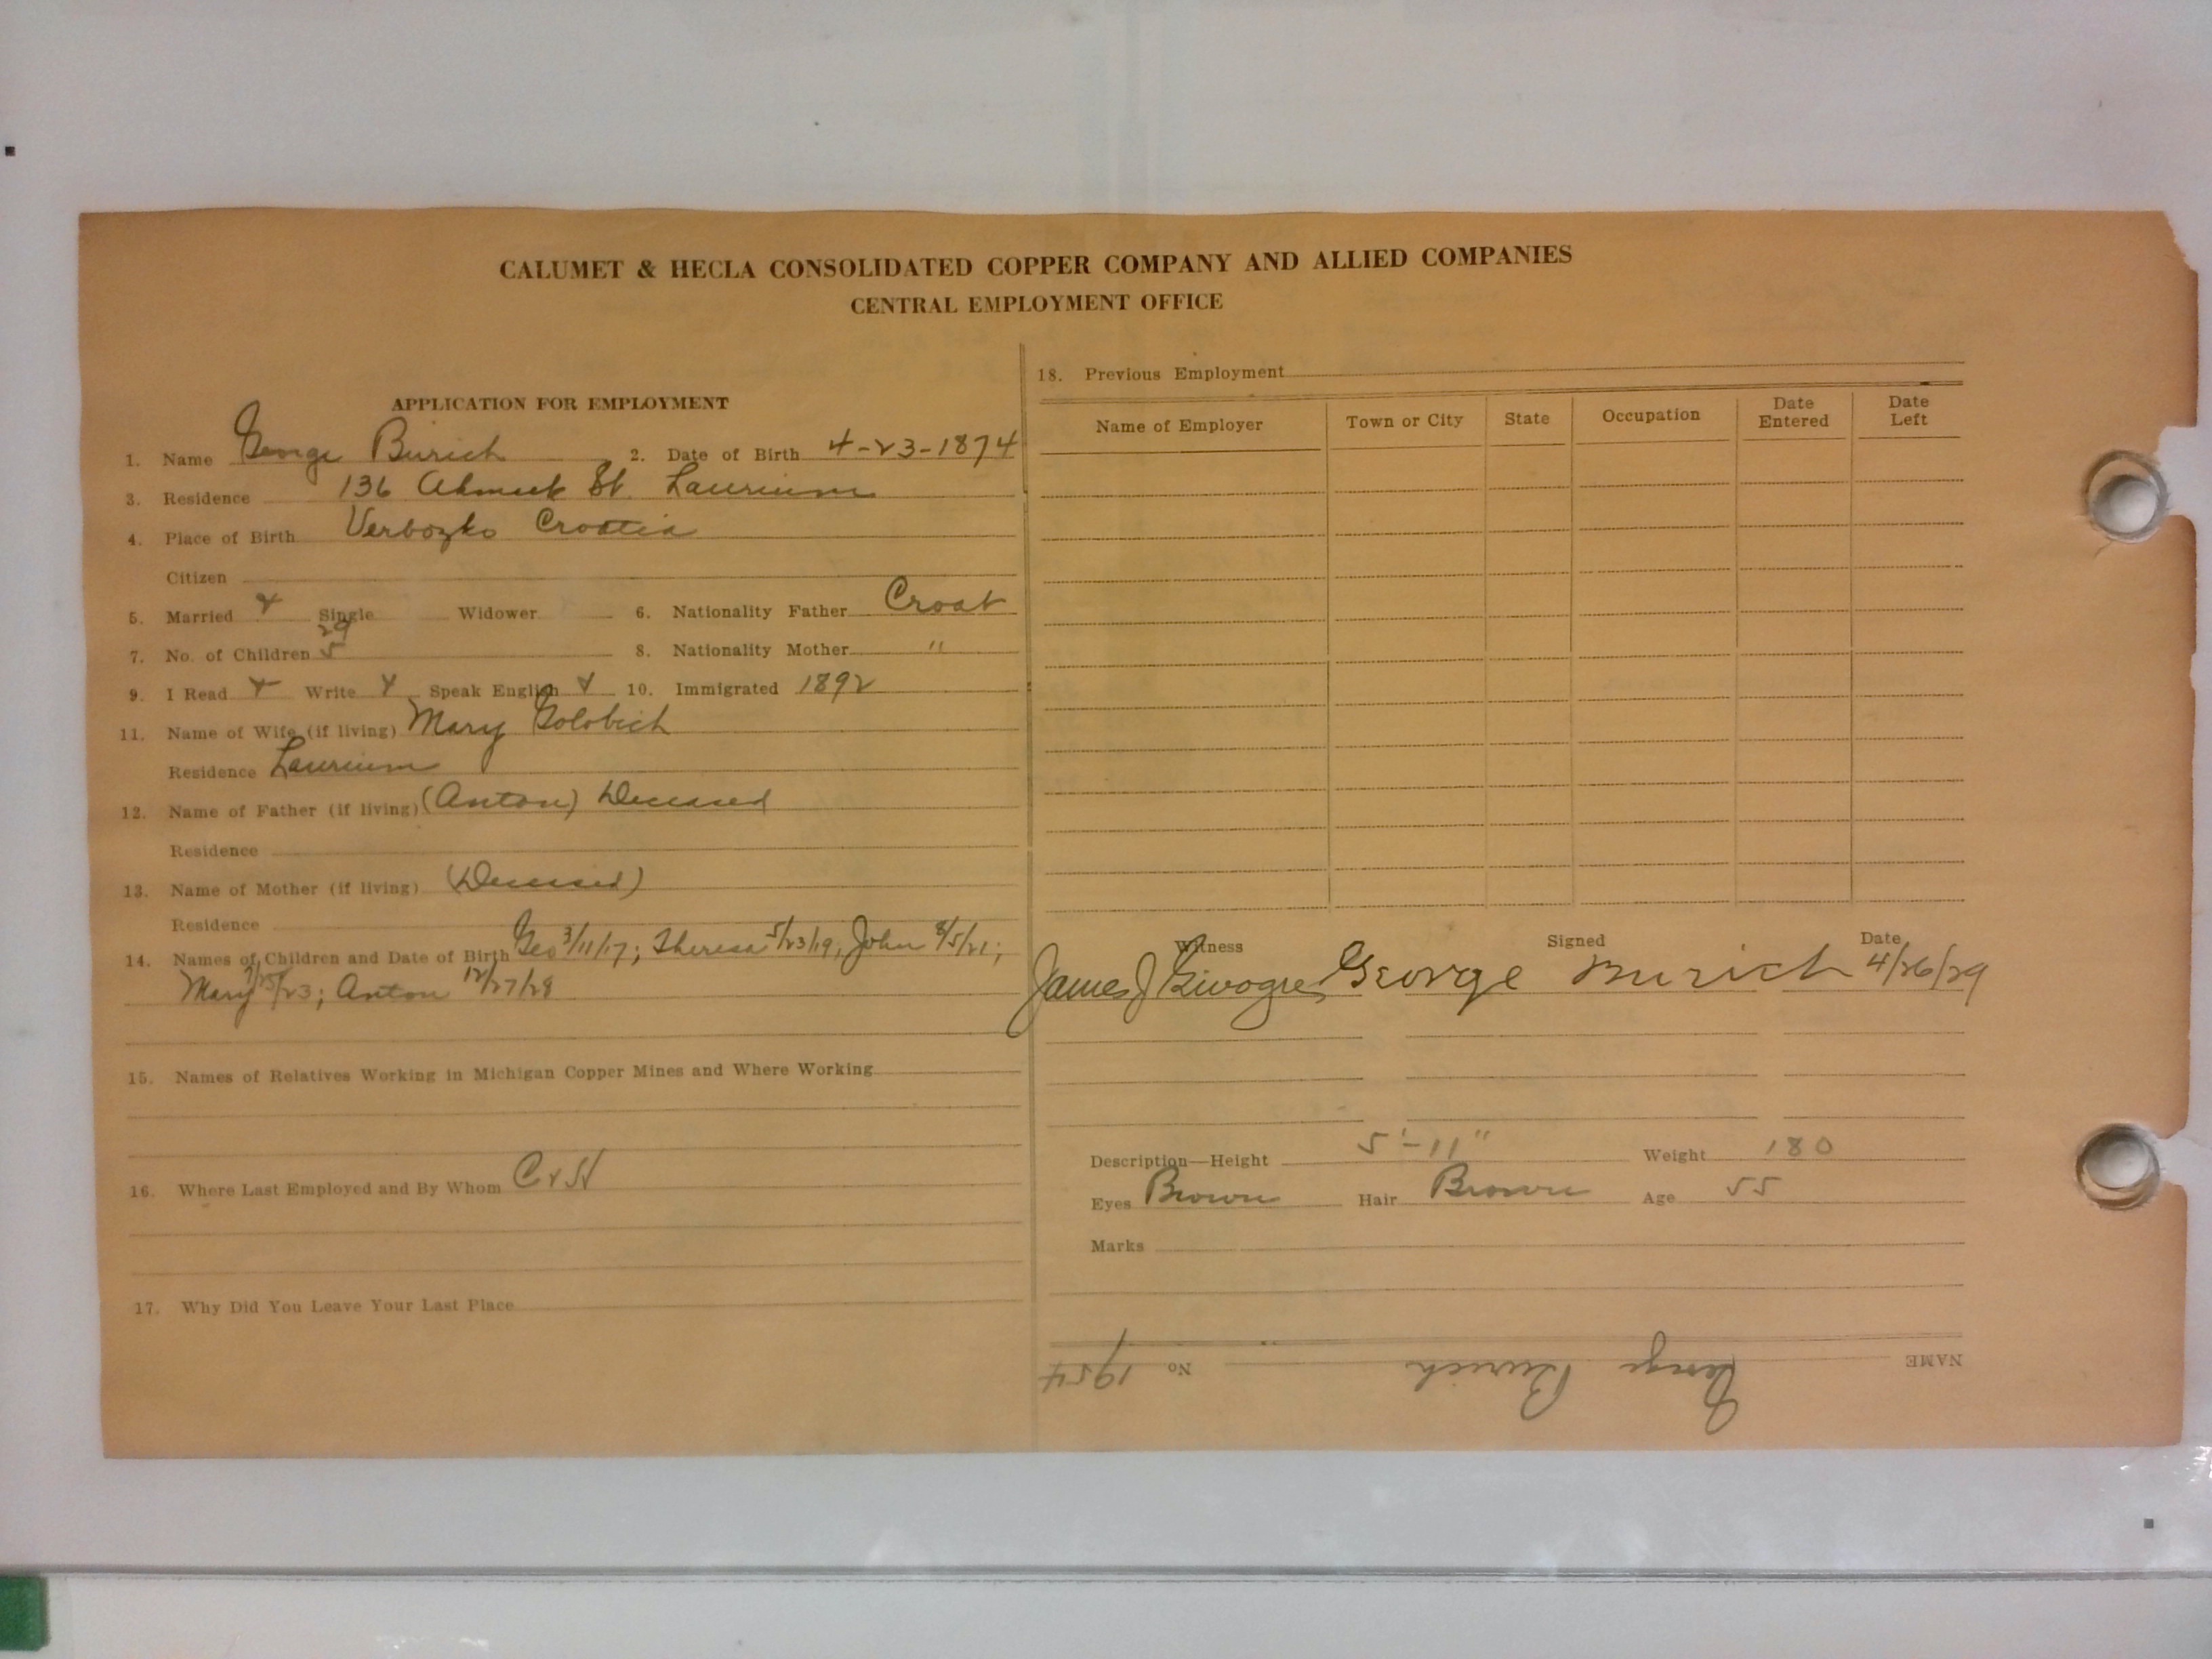 CALUMET & HECLA CONSOLIDATED COPPER COMPANY AND ALLIED COMPANIES
CENTRAL EMPLOYMENT OFFICE
APPLICATION FOR EMPLOYMENT
1. Name George Burich 2. Date of Birth 4-23-1874
3. Residence 136 Ahmeek St. Laurium
4. Place of Birth Verbozko Croatia
Citizen
5. Married x Single Widower 6. Nationality Father Croat
29
7. No. of Children 5 8. Nationality Mother "
9. I Read x Write x Speak English x 10. Immigrated 1892
11. Name of Wife (if living) Mary Golobich
Residence Laurium
12. Name of Father (if living) (Anton) Deceased
Residence
13. Name of Mother (if living) (Deceased)
Residence
14. Names of Children and Date of Birth Geo 3/11/17; Theresa 5/23/19; John 8/5/21;
Mary /23; Anton 12/27/28
15. Names of Relatives Working in Michigan Copper Mines and Where Working
16. Where Last Employed and By Whom C & H
17. Why Did You Leave Your Last Place
18. Previous Employment
Name of Employer Town or City State Occupation Date Entered Date Left
Witness Signed Date
James J George Burich 4/26/29
Description—Height 5'-11" Weight 180
Eyes Brown Hair Brown Age 55
Marks
NAME George Burich No 1954